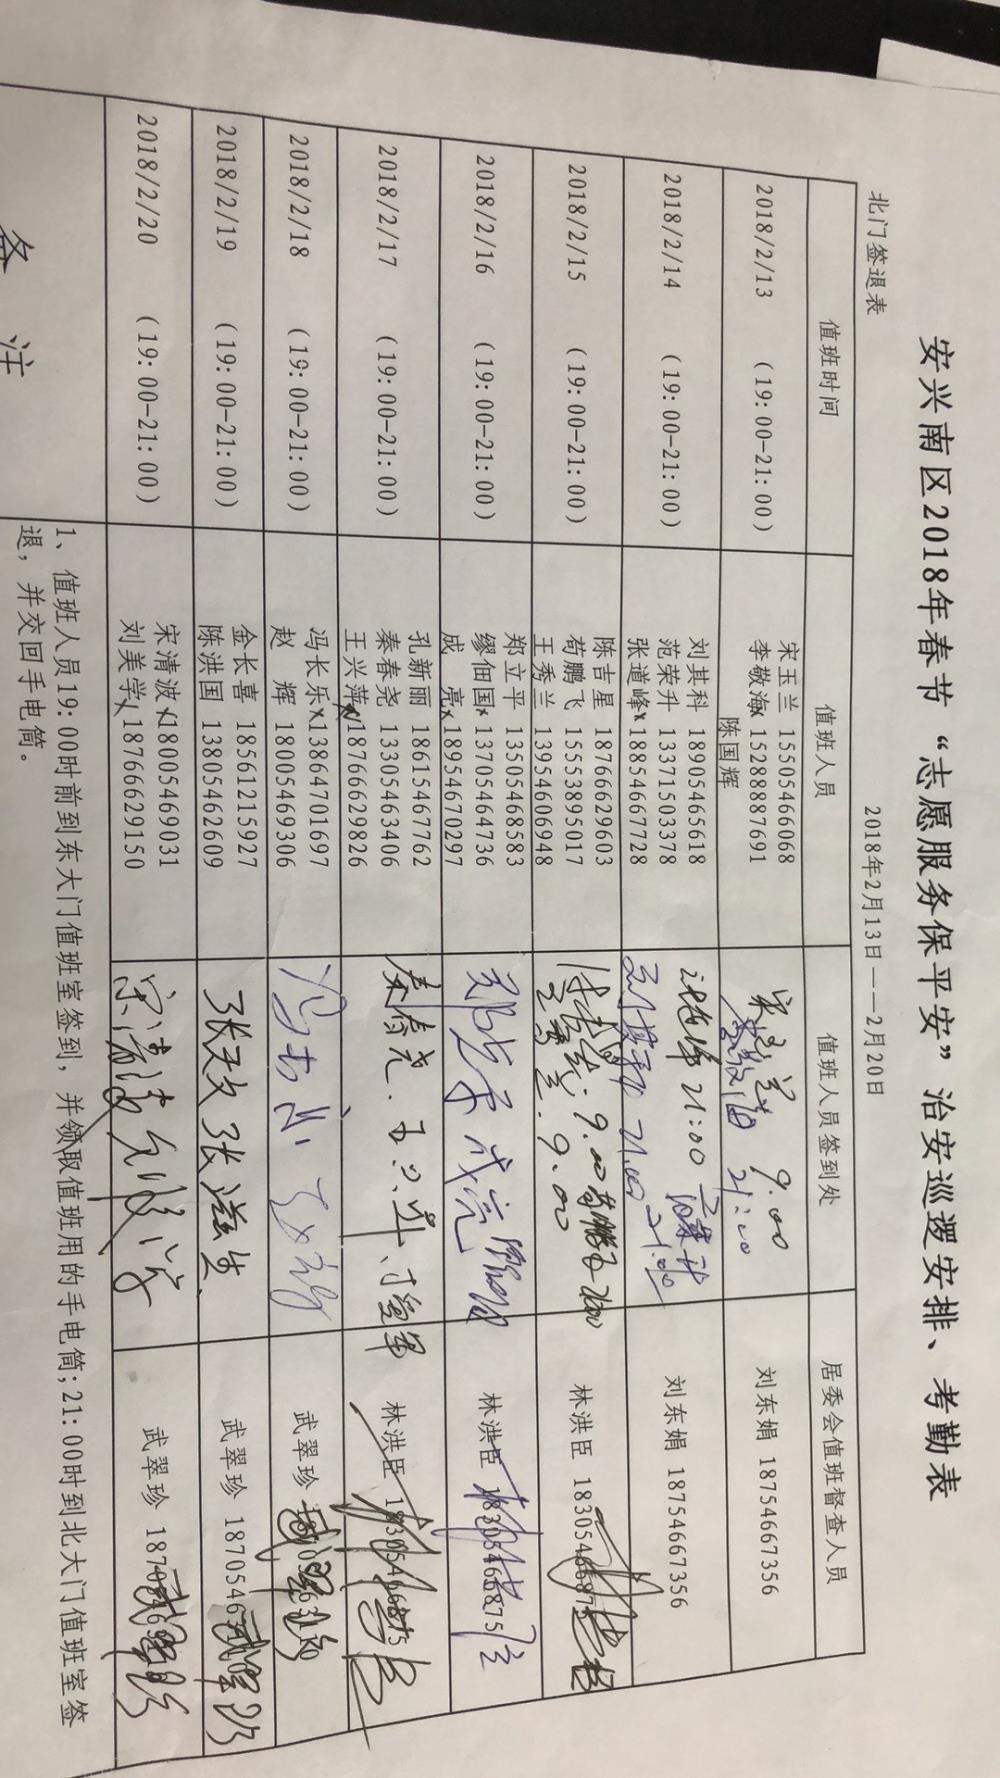 安兴南区2018年春节“志愿服务保平安”治安巡逻安排、考勤表
北门签退表 2018年2月13日——2月20日
值班时间 值班人员 值班人员签到处 居委会值班督查人员
2018/2/13 (19:00-21:00) 宋玉兰 15505466068 宋玉兰 9.00 刘东娟 18754667356
李敬海 15288887691 李敬海 21:00
陈国辉
2018/2/14 (19:00-21:00) 刘其科 18905465618 21:00 刘东娟 18754667356
范荣升 13371503378 刘其科 21.00 21.00
张道峰 18854667728
2018/2/15 (19:00-21:00) 陈吉星 18766629603 陈吉星:9.00 苟鹏飞 林洪臣
苟鹏飞 15553895017 王秀兰.9.00
王秀兰 13954606948
2018/2/16 (19:00-21:00) 郑立平 13505468583 郑立平 成亮 林洪臣 18305466875
缪佃国 13705464736
成 亮 18954670297
2018/2/17 (19:00-21:00) 孔新丽 18615467762 秦春尧. 王兴萍、 林洪臣 18305466875
秦春尧 13305463406
王兴萍 18766629826
2018/2/18 (19:00-21:00) 冯长乐 13864701697 冯长乐 武翠珍
赵 辉 18005469306
2018/2/19 (19:00-21:00) 金长喜 18561215927 武翠珍
陈洪国 13805462609
2018/2/20 (19:00-21:00) 宋清波 18005469031 宋清波 武翠珍
刘美学 18766629150
备 注 1、值班人员19:00时前到东大门值班室签到,并领取值班用的手电筒;21:00时到北大门值班室签
退,并交回手电筒。